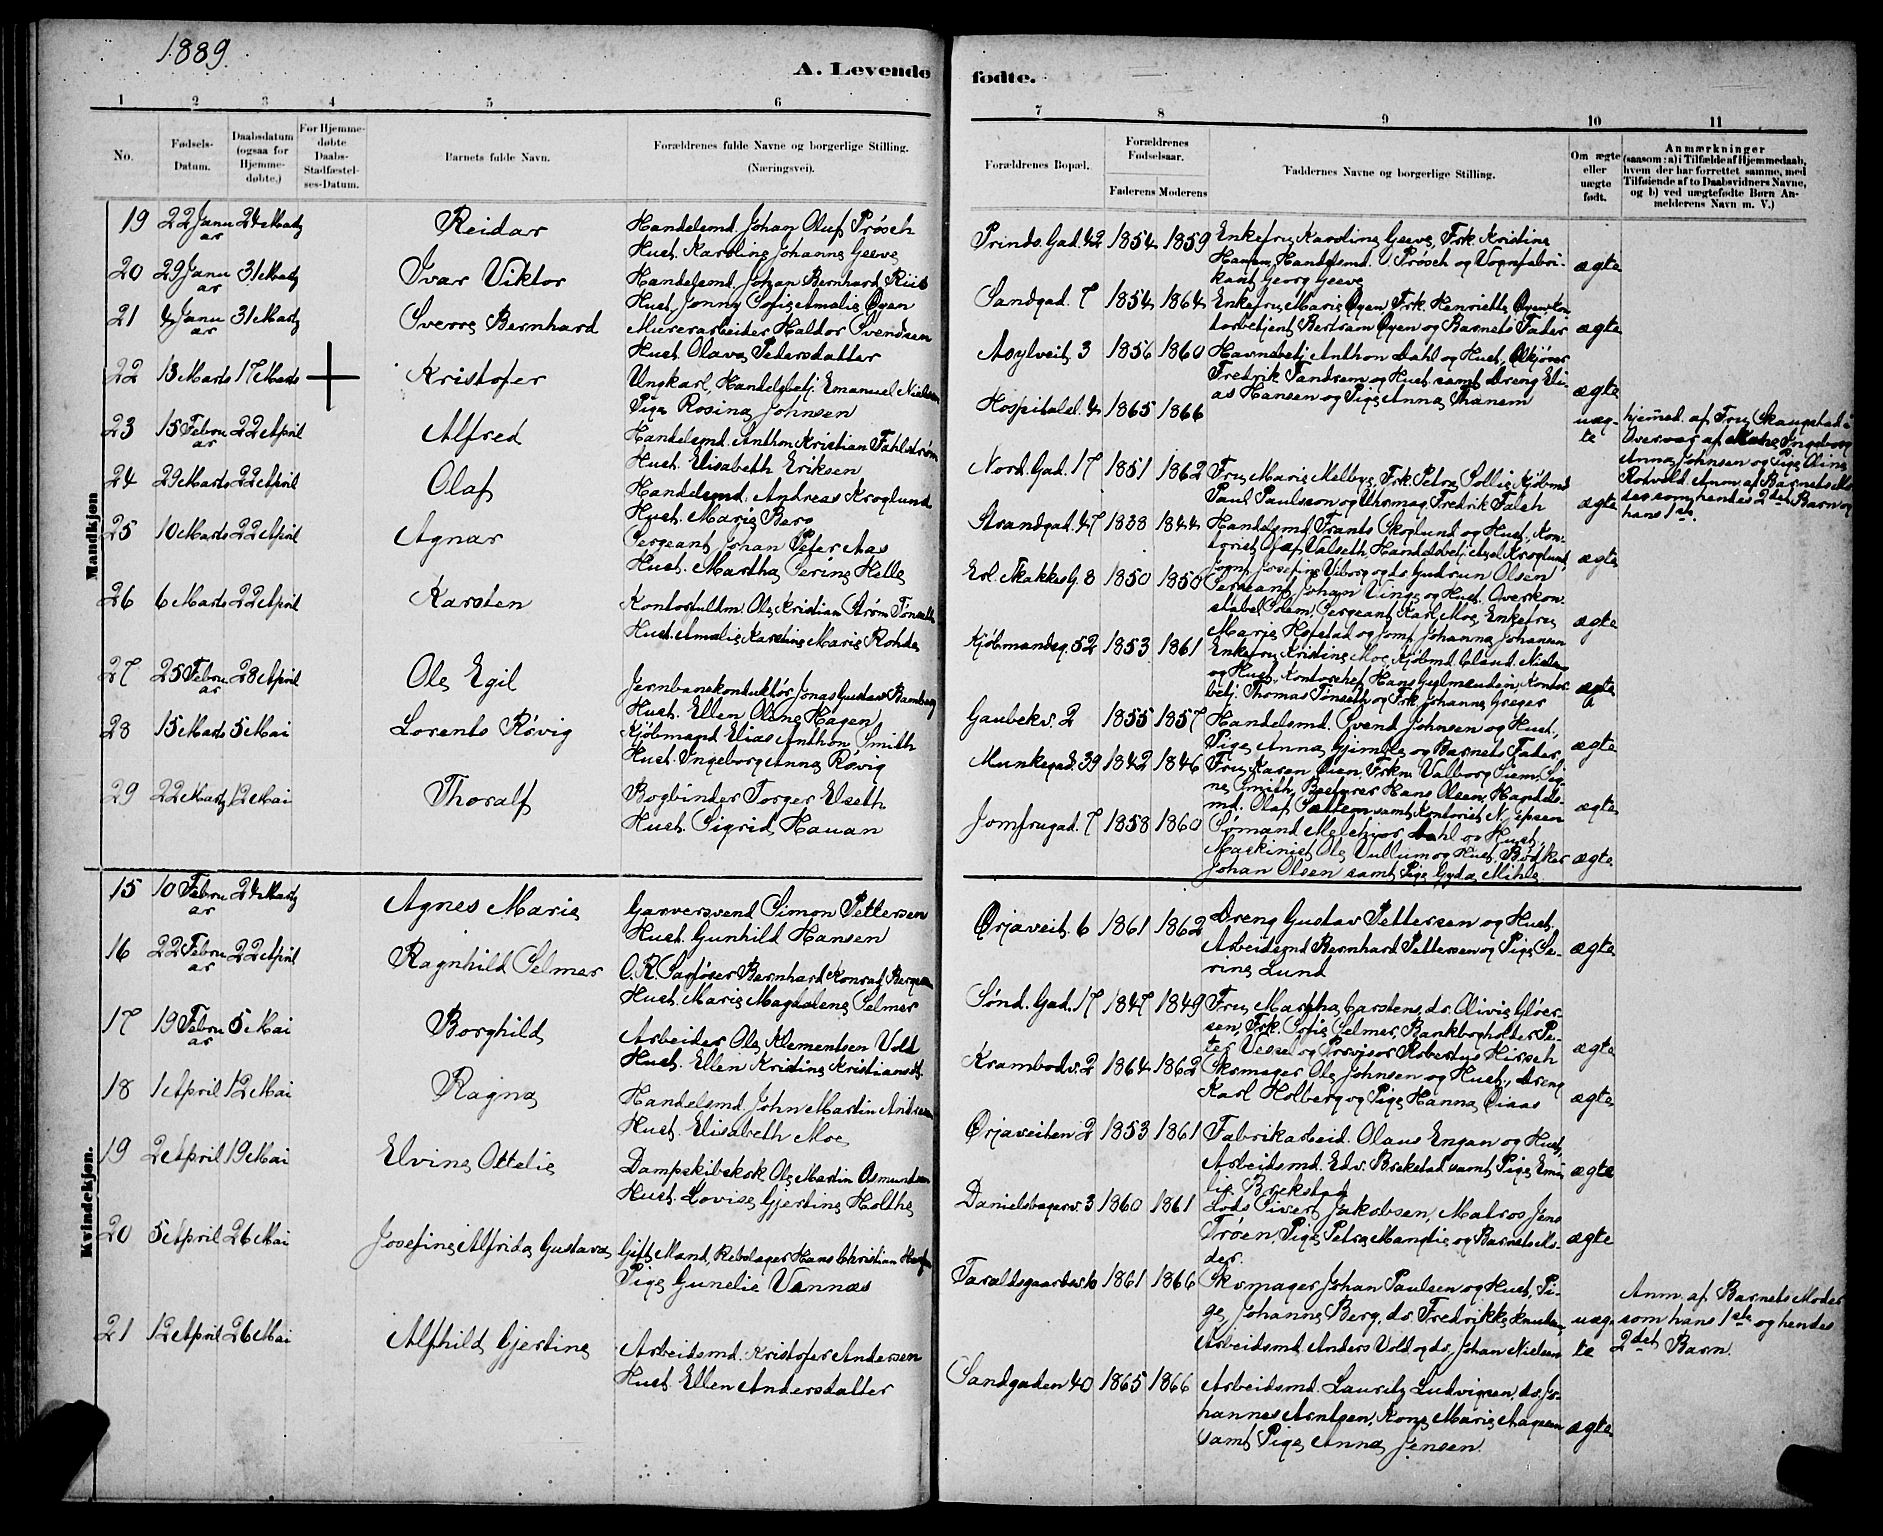 1889.
A. Levende fødte.
1 2 3 4 5 6 7 8 9 10 11
No.
Fødsels-Datum.
Daabsdatum (ogsaa for Hjemme-døbte.)
For Hjemme-døbte Daabs-Stadfæstel-ses-Datum.
Barnets fulde Navn.
Forældrenes fulde Navne og borgerlige Stilling.
(Næringsvei).
Forældrenes Bopæl.
Forældrenes Fødselsaar.
Faderens Moderens
Faddernes Navne og borgerlige Stilling.
Om ægte eller uægte født.
Anmærkninger
(saasom: a) i Tilfælde af Hjemmedaab,
hvem der har forrettet samme, med
Tilføiende af to Daabsvidners Navne,
og b) ved uægtefødte Børn An-
melderens Navn m. V.)
Mandkjøn
19 22 Januar 24 Marts Reidar
Handelsmd. Johan Oluf Prøsch
Hust. Karoline Johanne Geeve
Prinds. Gad. 42 1854 1859
Enkefru Karoline Geeve, Frk. Kristine
Hansen, Handelsmd. O. Prøsch og Vognfabri-
kant Georg Geeve
ægte
20 29 Januar 31 Marts Ivar Viktor
Handelsmd. Johan Bernhard Riis
Hust. Jonny Sofie Amalie Øyen
Sandgad. 7 1854 1864
Enkefru Marie Øyen, Frk. Henriette Øyen, Kon-
torbetjent Bertram Øyen og Barnets Fader
ægte
21 4 Januar 31 Marts Sverre Bernhard
Murerarbeider Haldor Svendsen
Hust. Olava Pedersdatter
Asylveit. 3 1856 1860
Havnebetj. Anthon Dahl og Hust.,
Fredrik Tandrem og Hust. samt Dreng Eli-
as Hansen og Pige Anna Thanem
ægte
22 13 Marts 17 Marts Kristofer
Ungkarl, Handelsbetj. Emanuel Nielsen
Pige Rosina Johnsen
Hospitalsl. 4 1865 1866
uæg-
te
hjemmed. af Fru Skaugstad i
Overvær af Kone Ingeborg
Anna Johnsen og Pige Oline
Rotvold Anm. af Barnets Mo-
der som hendes 2det Barn og
hans 1ste.
23 15 Februar 22 April Alfred
Handelsmd. Anthon Kristian Fahlstrøm
Hust. Elisabeth Eriksen
Nord. Gad. 17 1851 1862
Fru Marie Melbye, Frk. Petra Sollie, Kjøbmd.
Paul Paulsson og Uhrmag. Fredrik Falch
ægte
24 29 Marts 22 April Olaf
Handelsmd. Andreas Kroglund
Hust. Marie Berg
Strandgad. 47 1838 1844
Handelsmd. Frants Skoglund og Hust., Kon-
torist Olaf Valseth, Handelsbetj. Axel Kroglund,
Jomf. Josefine Viborg og ds. Gudrun Olsen
ægte
25 10 Marts 22 April Agnar
Sergeant Johan Peter Aas
Hust. Martha Serine Helle
Erl. Skakkes G. 8 1850 1850
Sergeant Johan Vinge og Hust. Overkon-
stabel Solem, Sergeant Karl Moe, Enkefru
Marie Hofstad og Jomf. Johanna Johansen
ægte
26 6 Marts 22 April Karsten
Kontorfuldm. Ole Kristian Strøm Tønseth
Hust. Amalie Karoline Marie Rohde
Kjøbmandsg. 52 1853 1861
Enkefru Kristine Moe, Kjøbmd. Claud. Nielsen
og Hust., Kontorchef Hans Gulmendin, Kontor-
betj. Thomas Tønseth og Frk. Johanne Greger
ægte
27 25 Februar 28 April Ole Egil
Jernbanekonduktør Jonas Gustav Ramberg
Hust. Ellen Oline Hagen
Gaubekv. 2 1855 1857
Handelsmd. Svend Johnsen og Hust.,
Pige Anna Gimble og Barnets Fader
ægte
28 15 Marts 5 Mai Lorents Røvig
Kjøbmand Elias Anthon Smith
Hust. Ingeborg Anna Røvig
Munkegad. 39 1842 1846
Fru Karen Øien, Frkn. Valborg Siem, Sig-
ne Smith, Bestyrer Hans Olsen, Handels-
md. Olaf Sættem samt Kontorist N. Jepsen
ægte
29 22 Marts 12 Mai Thoralf
Bogbinder Torger Elseth
Hust. Sigrid Hauan
Jomfrugad. 7 1858 1860
Sømand Melchior Dahl og Hust.
Maskinist Ole Vullum og Hust, Bødker
Johan Olsen samt Pige Gyda Mihle
ægte
Kvindekjøn.
15 10 Februar 24 Marts Agnes Marie
Garversvend Simon Pettersen
Hust. Gunhild Hansen
Ørjaveit. 6 1861 1862
Dreng Gustav Pettersen og Hust.
Arbeidsmd Bernhard Pettersen og Pige Se-
rine Lund
ægte
16 22 Februar 22 April Ragnhild Selmer
O.R. Sagfører Bernhard Konrad Bergersen
Hust. Marie Magdalene Selmer
Sønd. Gad. 17 1847 1849
Fru Martha Carstens, ds. Olivie Gløer-
sen, Frk. Sofie Selmer, Bankbogholder Pe-
ter Vessel og Provisor Robertus Hirsch
ægte
17 19 Februar 5 Mai Borghild
Arbeider Ole Klementsen Vold
Hust. Ellen Kristine Kristiansd.
Krambodv. 2 1864 1862
Skomager Ole Johnsen og Hust., Dreng
Karl Holberg og Pige Hanna Oiaas
ægte
18 1 April 12 Mai Ragna
Handelsmd. John Martin Andersen
Hust. Elisabeth Moe
Ørjaveiten 2 1853 1861
Fabrikarbeid. Olaus Engan og Hust,
Arbeidsmd. Edv. Brekstad samt Pige Emi-
lie Brekstad
ægte
19 2 April 19 Mai Elvine Ottelie
Dampskibskok Ole Martin Osmundsen
Hust. Lovise Gjertine Holthe
Danielsbagerv. 3 1860 1861
Lods Sivert Jakobsen, Matros Jens
Trøen, Pige Petra Manglie og Barnets Mo-
der.
ægte
20 5 April 26 Mai Josefine Alfride Gustava
Gift Mand, Rebslager Hans Christian
Pige Gunelie Vannæs
1861 1866
Skomager Johan Paulsen og Hust, Pi-
ge Johanne Berg, ds. Fredrikke Knudsen,
Arbeidsmd. Anders Vold og ds. Johan Nielsen
uæg-
te
Anm. af Barnets Moder
som hans 1ste og hendes
2det Barn.
21 12 April 26 Mai Alfhild Gjertine
Arbeidsmd. Kristofer Andersen
Hust. Ellen Andersdatter
Sandgaden 40 1865 1866
Arbeidsmd. Lauritz Ludvigsen, ds. Jo-
hannes Arntsen, Kone Marie Aagesen
samt Pige Anna Jensen.
ægte